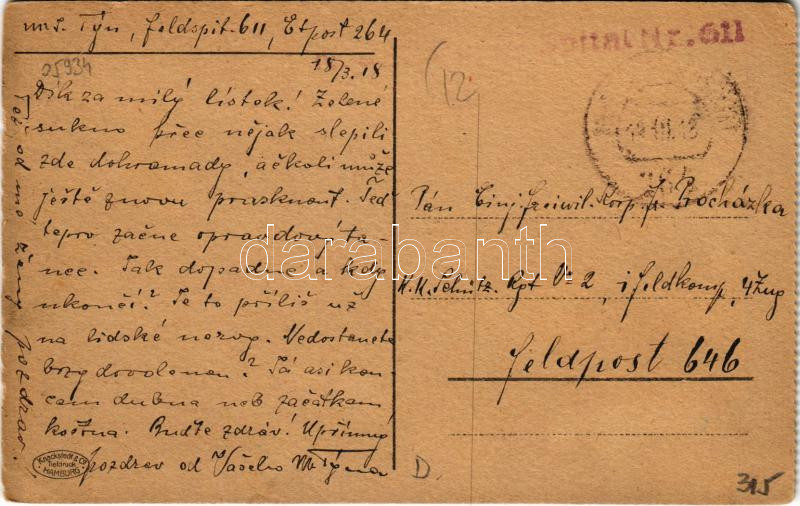 Týn, Feldspit. 611, Etpost 264
18/3. 18
05934
Dík za milý lístek! Zelené
sukno přec nějak slepili
zde dohromady, ačkoli může
ještě znovu prasknout. Teď
tepro začne opravdový ta-
nec. Jak dopadne a kdy
ukončí? Je to příliš už
na lidské nervy. Nedostanete
brzy dovolenou? Já asi kon-
cem dubna neb začátkem
května. Buďte zdráv! Upřímný
pozdrav od Vašeho Týna
Též od mé ženy pozdrav.
Knackstedt & Co.
Tiefdruck
HAMBURG
Nr. 611
(12
Pán Einj. Freiwil. Korp. Procházka
K.K. Schütz. Rgt No 2, Feldkomp, 4 Zug
Feldpost 646
D.
315
darabanth